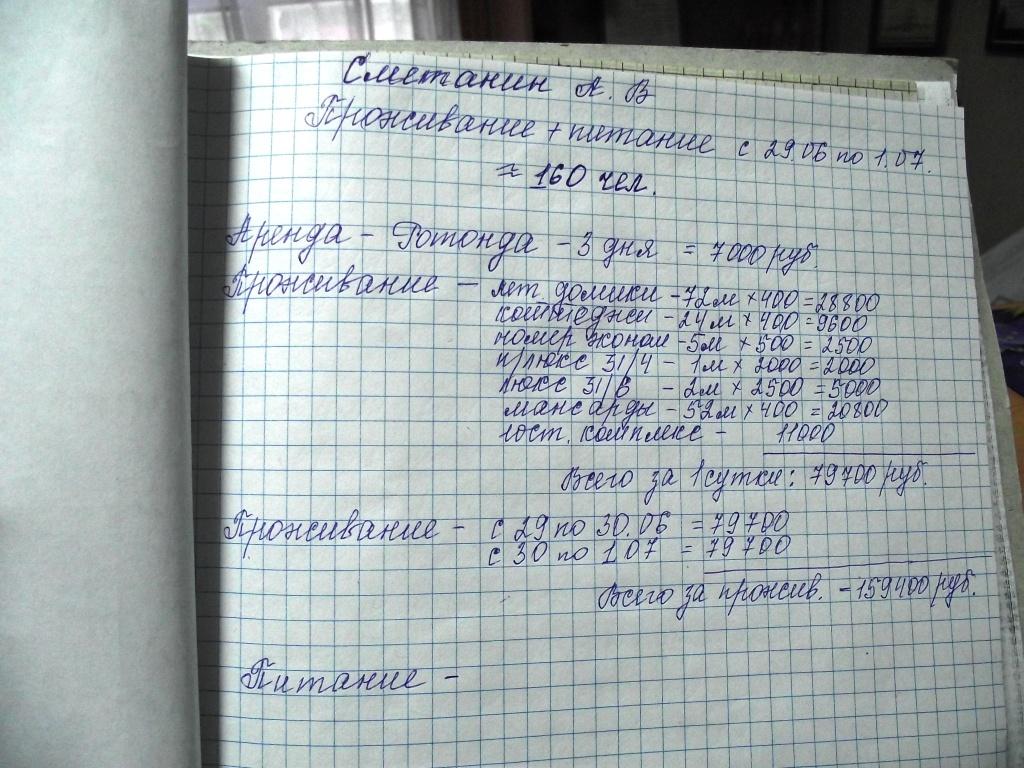 Сметанин А. В
Проживание + питание с 29.06 по 1.07.
≈ 160 чел.
Аренда - Ротонда - 3 дня = 7000 руб.
Проживание - лет. домики - 72м × 400 = 28800
коттеджи - 24м × 400 = 9600
номер эконом - 5м × 500 = 2500
п/люкс 31/4 - 1м × 2000 = 2000
люкс 31/8 - 2м × 2500 = 5000
мансарды - 52м × 400 = 20800
гост. комплекс - 11000
Всего за 1 сутки: 79700 руб.
Проживание - с 29 по 30.06 = 79700
с 30 по 1.07 = 79700
Всего за прожив. - 159400 руб.
Питание -